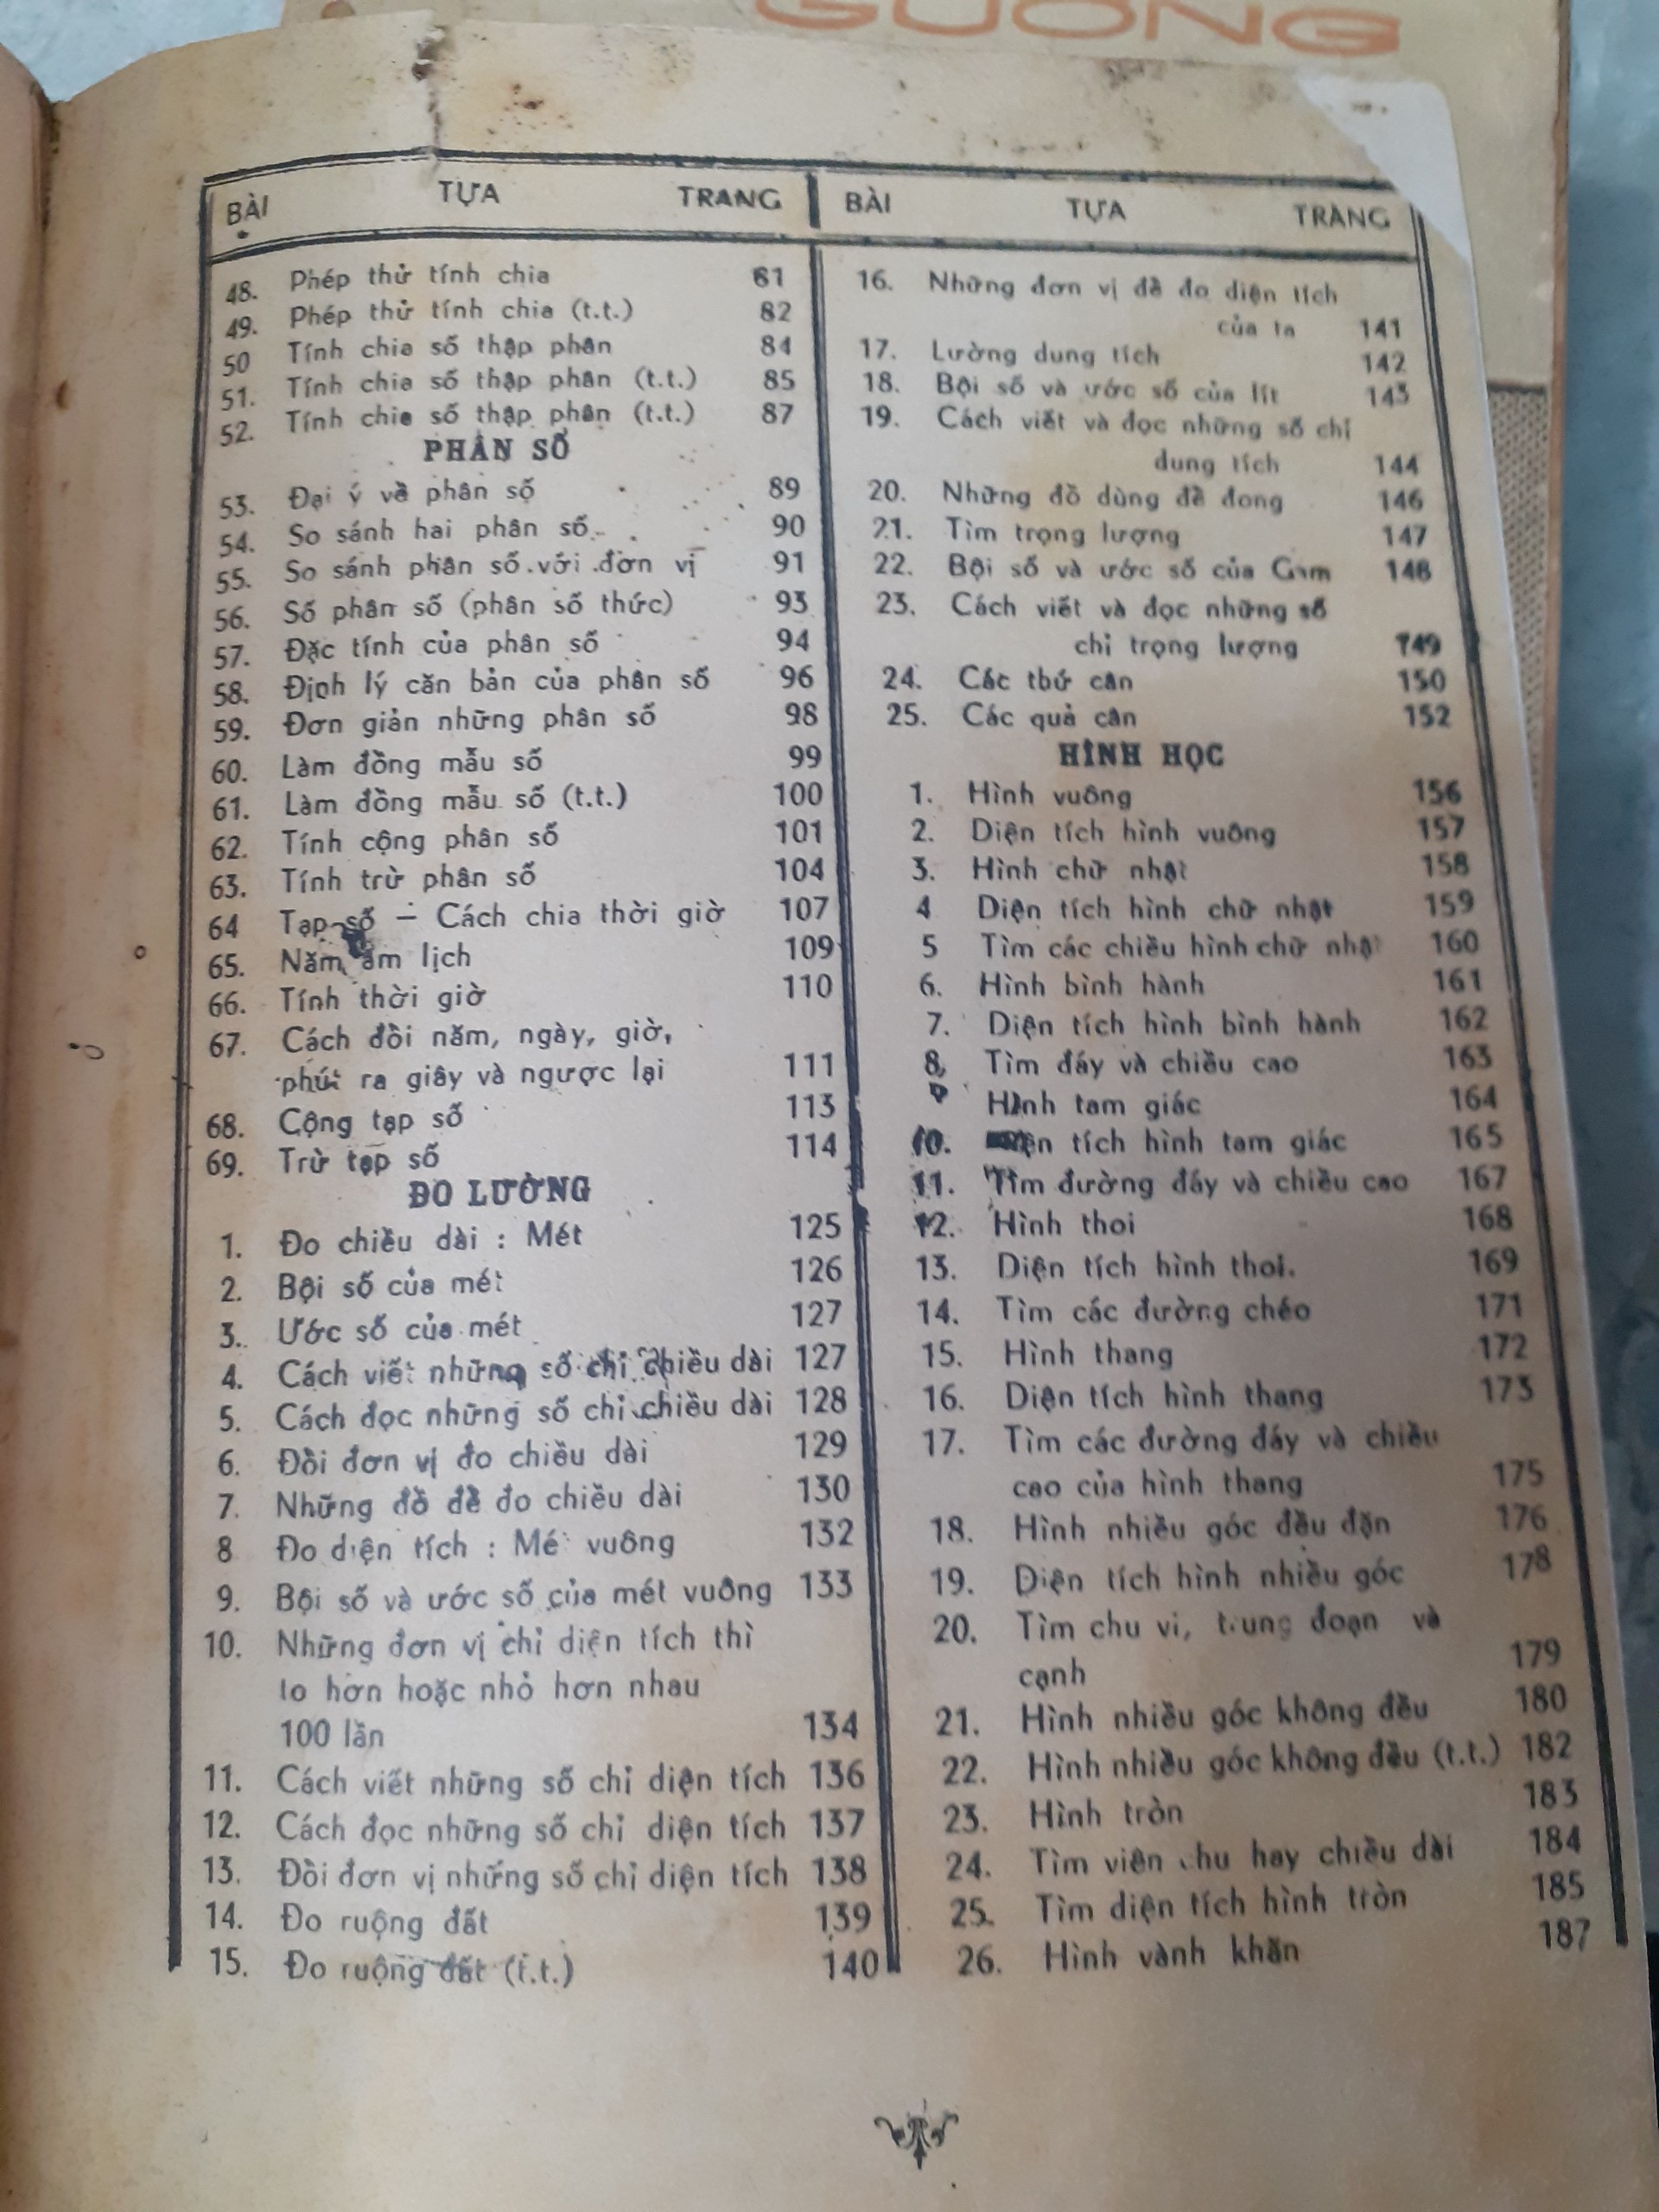 GUONG
BÀI TỰA TRANG
48. Phép thử tính chia 81
49. Phép thử tính chia (t.t.) 82
50 Tính chia số thập phân 84
51. Tính chia số thập phân (t.t.) 85
52. Tính chia số thập phân (t.t.) 87
PHÂN SỐ
53. Đại ý về phân số 89
54. So sánh hai phân số 90
55. So sánh phân số với đơn vị 91
56. Số phân số (phân số thức) 93
57. Đặc tính của phân số 94
58. Định lý căn bản của phân số 96
59. Đơn giản những phân số 98
60. Làm đồng mẫu số 99
61. Làm đồng mẫu số (t.t.) 100
62. Tính cộng phân số 101
63. Tính trừ phân số 104
64 Tạp số — Cách chia thời giờ 107
65. Năm âm lịch 109
66. Tính thời giờ 110
67. Cách đổi năm, ngày, giờ,
phút ra giây và ngược lại 111
68. Cộng tạp số 113
69. Trừ tạp số 114
ĐO LƯỜNG
1. Đo chiều dài : Mét 125
2. Bội số của mét 126
3. Ước số của mét 127
4. Cách viết những số chỉ chiều dài 127
5. Cách đọc những số chỉ chiều dài 128
6. Đổi đơn vị đo chiều dài 129
7. Những đồ để đo chiều dài 130
8 Đo diện tích : Mé vuông 132
9. Bội số và ước số của mét vuông 133
10. Những đơn vị chỉ diện tích thì
to hơn hoặc nhỏ hơn nhau
100 lần 134
11. Cách viết những số chỉ diện tích 136
12. Cách đọc những số chỉ diện tích 137
13. Đổi đơn vị những số chỉ diện tích 138
14. Đo ruộng đất 139
15. Đo ruộng đất (t.t.) 140
BÀI TỰA TRANG
16. Những đơn vị để đo diện tích
của ta 141
17. Lường dung tích 142
18. Bội số và ước số của lít 143
19. Cách viết và đọc những số chỉ
dung tích 144
20. Những đồ dùng để đong 146
21. Tìm trọng lượng 147
22. Bội số và ước số của Gam 148
23. Cách viết và đọc những số
chỉ trọng lượng 149
24. Các thứ cân 150
25. Các quả cân 152
HÌNH HỌC
1. Hình vuông 156
2. Diện tích hình vuông 157
3. Hình chữ nhật 158
4 Diện tích hình chữ nhật 159
5 Tìm các chiều hình chữ nhật 160
6. Hình bình hành 161
7. Diện tích hình bình hành 162
8. Tìm đáy và chiều cao 163
Hình tam giác 164
10. Diện tích hình tam giác 165
11. Tìm đường đáy và chiều cao 167
12. Hình thoi 168
13. Diện tích hình thoi. 169
14. Tìm các đường chéo 171
15. Hình thang 172
16. Diện tích hình thang 173
17. Tìm các đường đáy và chiều
cao của hình thang 175
18. Hình nhiều góc đều đặn 176
19. Diện tích hình nhiều góc 178
20. Tìm chu vi, trung đoạn và
cạnh 179
21. Hình nhiều góc không đều 180
22. Hình nhiều góc không đều (t.t.) 182
23. Hình tròn 183
24. Tìm viên chu hay chiều dài 184
25. Tìm diện tích hình tròn 185
26. Hình vành khăn 187